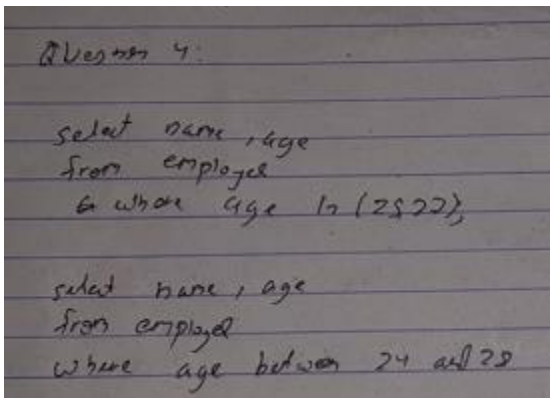 Question 4:
select name, age
from employee
where age in (2522);
select name, age
from employee
where age between 24 and 28